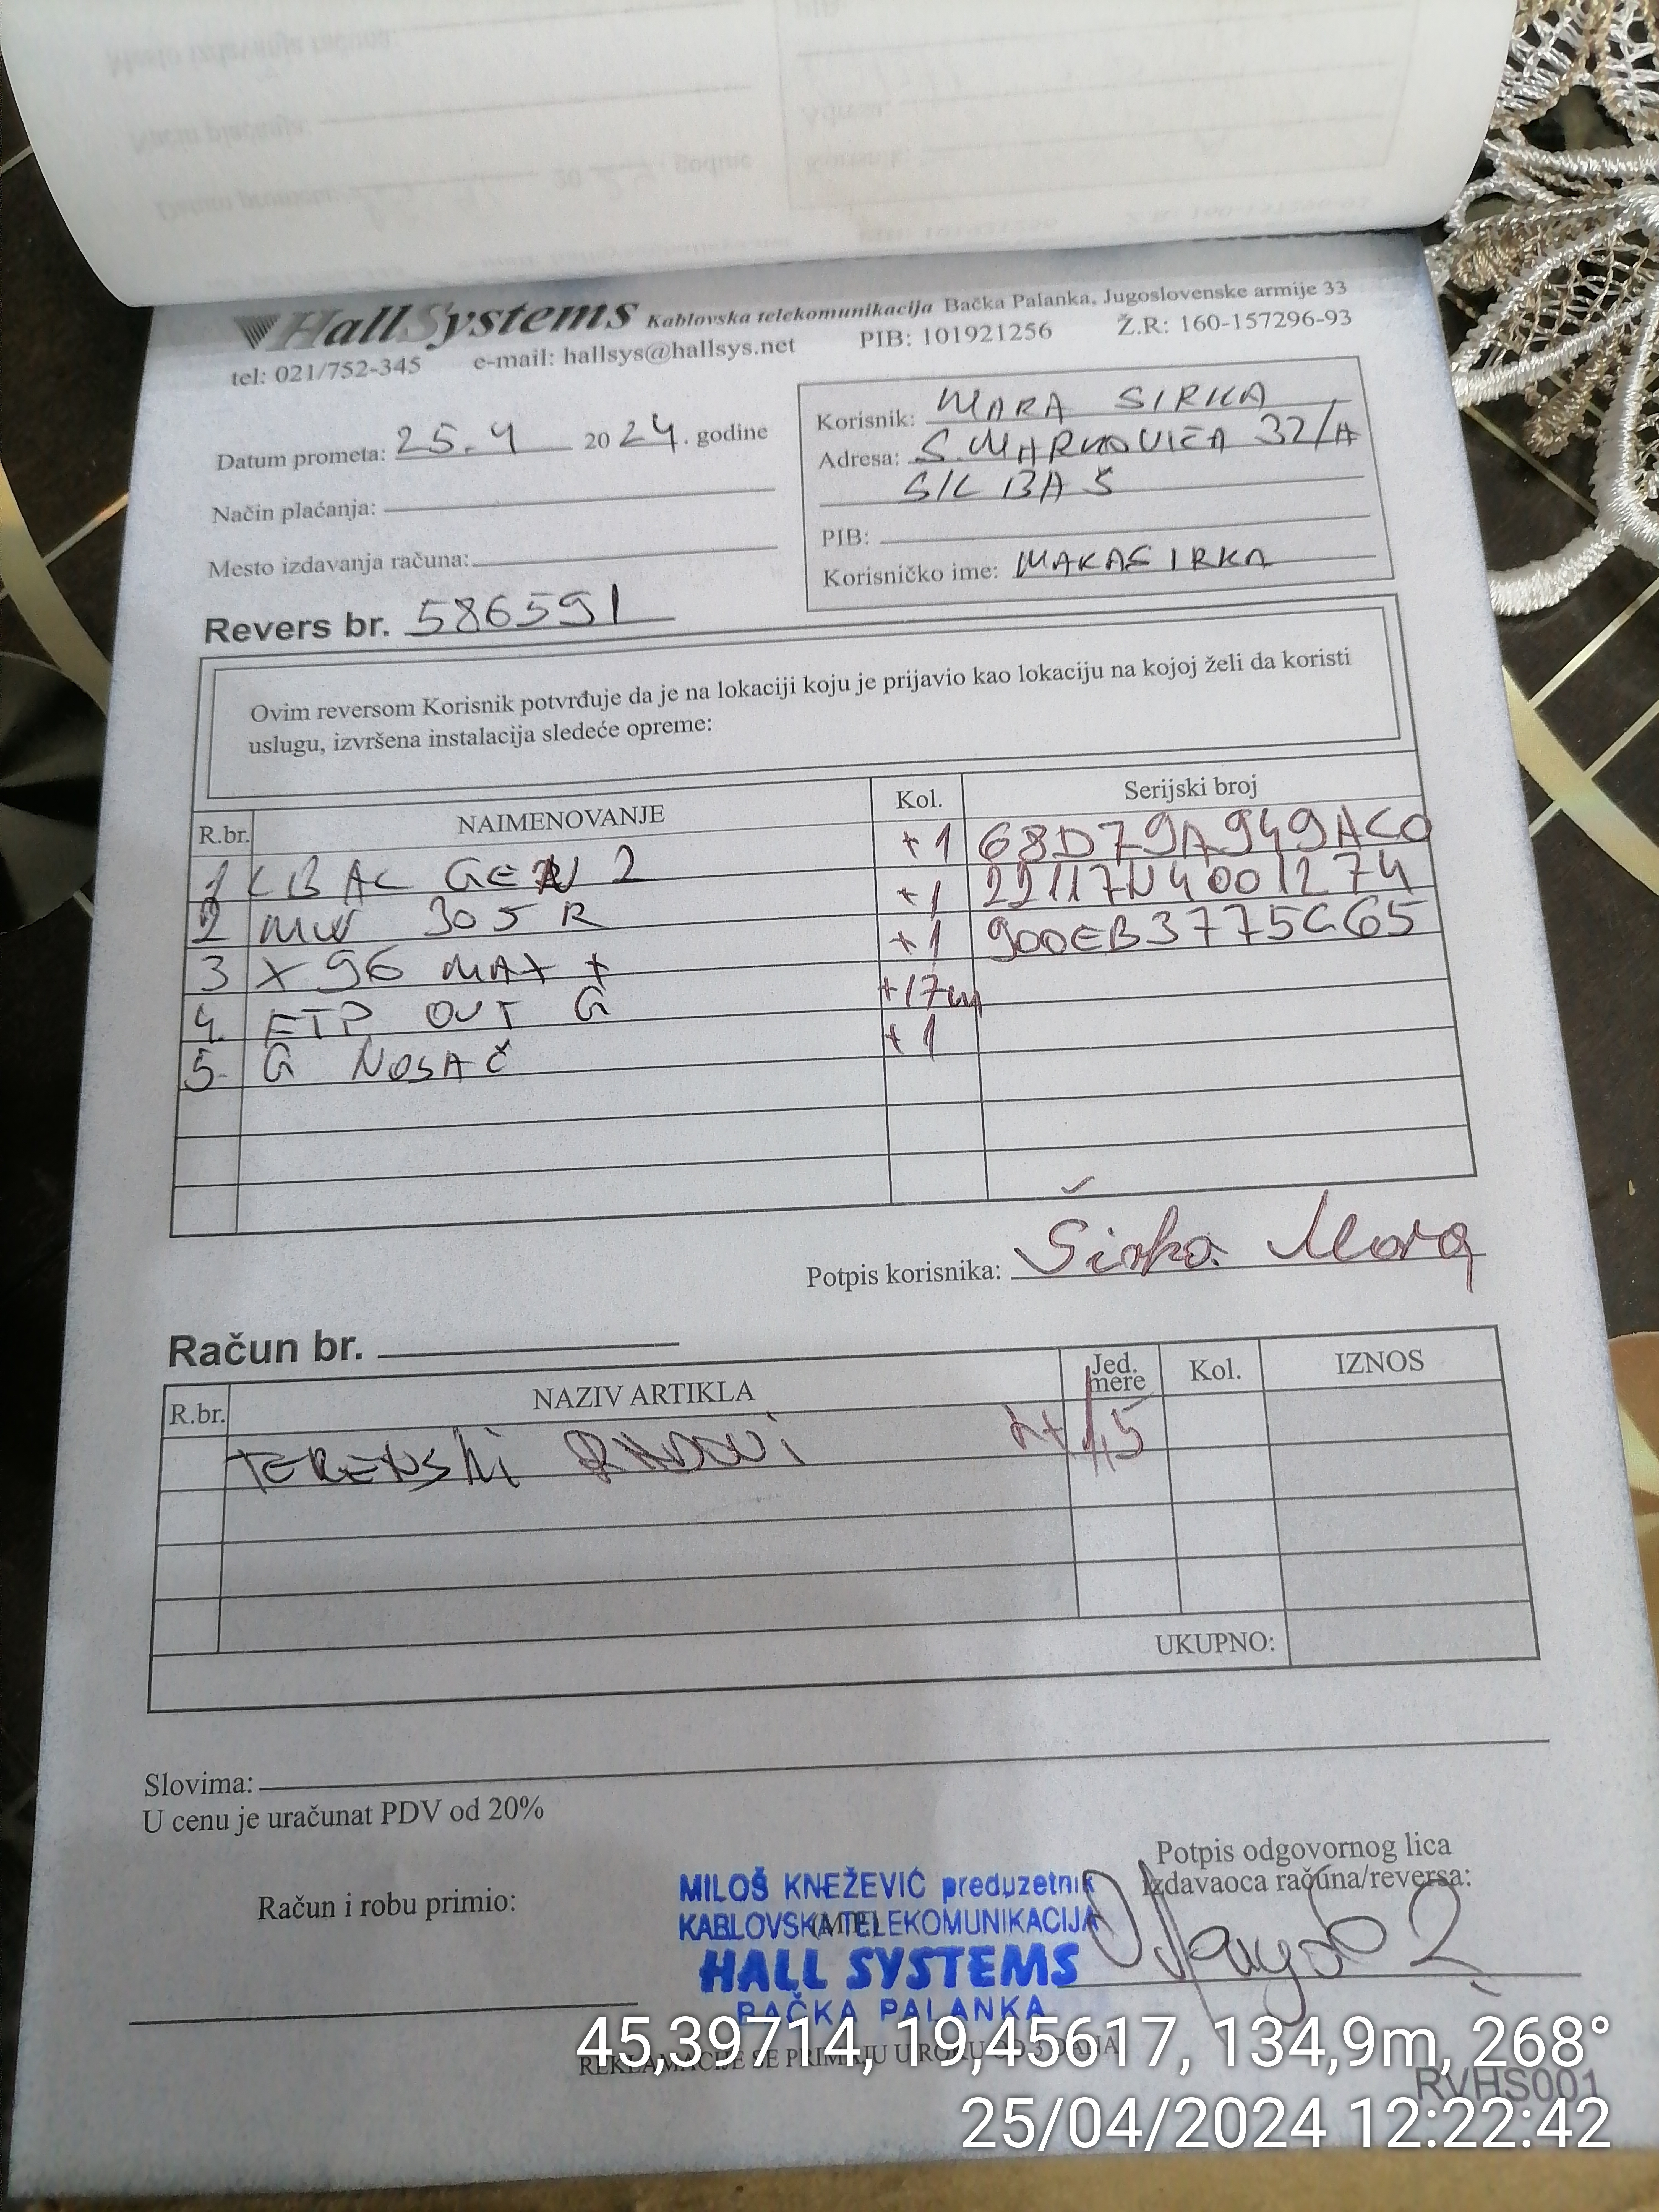 HallSystems Kablovska telekomunikacija Bačka Palanka, Jugoslovenske armije 33
tel: 021/752-345 e-mail: hallsys@hallsys.net PIB: 101921256 Ž.R: 160-157296-93
Datum prometa: 25.4 2024. godine
Način plaćanja:
Mesto izdavanja računa:
Korisnik: MARA SIRKA
Adresa: S. MARKOVIĆA 32/A
SILBAŠ
PIB:
Korisničko ime: MAKASIRKA
Revers br. 586591
Ovim reversom Korisnik potvrđuje da je na lokaciji koju je prijavio kao lokaciju na kojoj želi da koristi
uslugu, izvršena instalacija sledeće opreme:
R.br. NAIMENOVANJE Kol. Serijski broj
1 LBAC GEN 2 +1 68D79A949AC0
2 MW 305R +1 22117N4001274
3 X96 MAX + +1 900EB3775C65
4. FTP OUT G +17m
5. G NOSAČ +1
Potpis korisnika: Širka Mara
Račun br.
R.br. NAZIV ARTIKLA Jed. mere Kol. IZNOS
TERENSKI RADOVI 1,5
UKUPNO:
Slovima:
U cenu je uračunat PDV od 20%
Potpis odgovornog lica
izdavaoca računa/reversa:
Račun i robu primio:
MILOŠ KNEŽEVIĆ preduzetnik
KABLOVSKA TELEKOMUNIKACIJA
(M.P.)
HALL SYSTEMS
BAČKA PALANKA
REKLAMACIJE SE PRIMAJU U ROKU OD 3 DANA
RVHS001
45,39714, 19,45617, 134,9m, 268°
25/04/2024 12:22:42